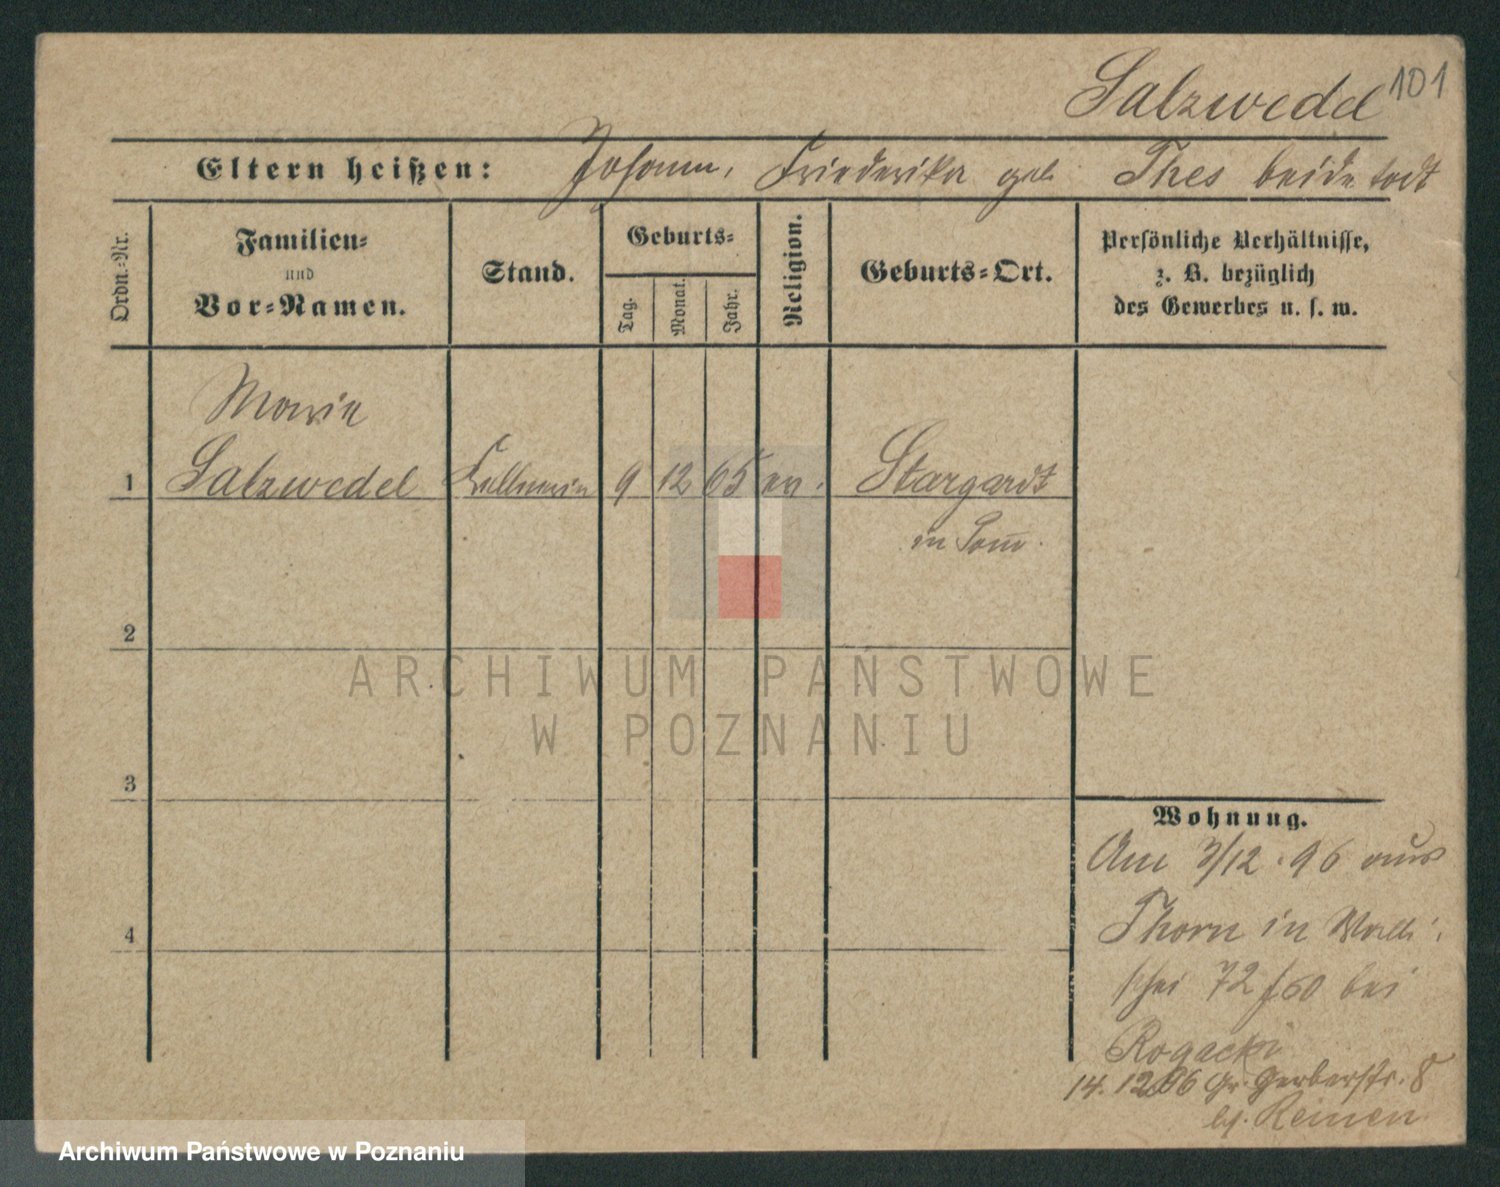 Salzwedel 101
Eltern heißen: Johann, Friederika geb. Thes beide todt
Ordn.-Nr.
Familien-
und
Vor-Namen.
Stand.
Geburts-
Tag.
Monat.
Jahr.
Religion.
Geburts-Ort.
Persönliche Verhältnisse,
z. B. bezüglich
des Gewerbes u. s. w.
Marie
1 Salzwedel Kellnerin 9 12 65 ev. Stargardt
in Pom.
2
ARCHIWUM PAŃSTWOWE
W POZNANIU
3
Wohnung.
Am 3/12.96 aus
4
Thorn in Walli
schei 72 bei
Rogacki
14.12.96 Gr. Gerberstr. 8
bei Reinen
Archiwum Państwowe w Poznaniu